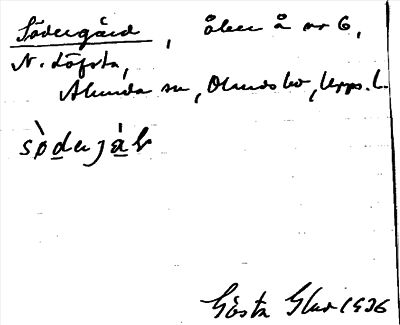 Södergård, åker å nr 6,
N. Löfsta,
Alunda sn, Olands hd, Upps. l.
söderjàḷ
Gösta Glad 1926